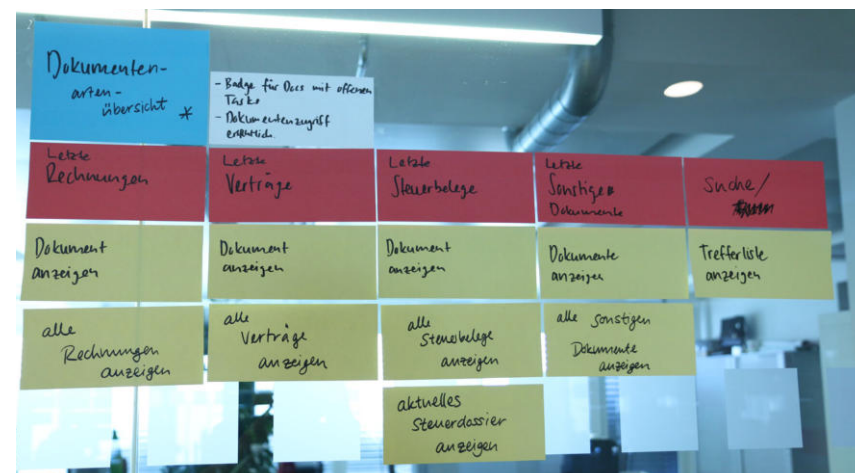 Dokumenten-
arten-
übersicht *
- Badge für Docs mit offenen
Tasks
- Dokumentenzugriff
ersichtlich.
Letzte
Rechnungen
Letzte
Verträge
Letzte
Steuerbelege
Letzte
Sonstige
Dokumente
Suche/
Dokument
anzeigen
Dokument
anzeigen
Dokument
anzeigen
Dokumente
anzeigen
Trefferliste
anzeigen
alle
Rechnungen
anzeigen
alle
Verträge
anzeigen
alle
Steuerbelege
anzeigen
alle sonstigen
Dokumente
anzeigen
aktuelles
Steuerdossier
anzeigen